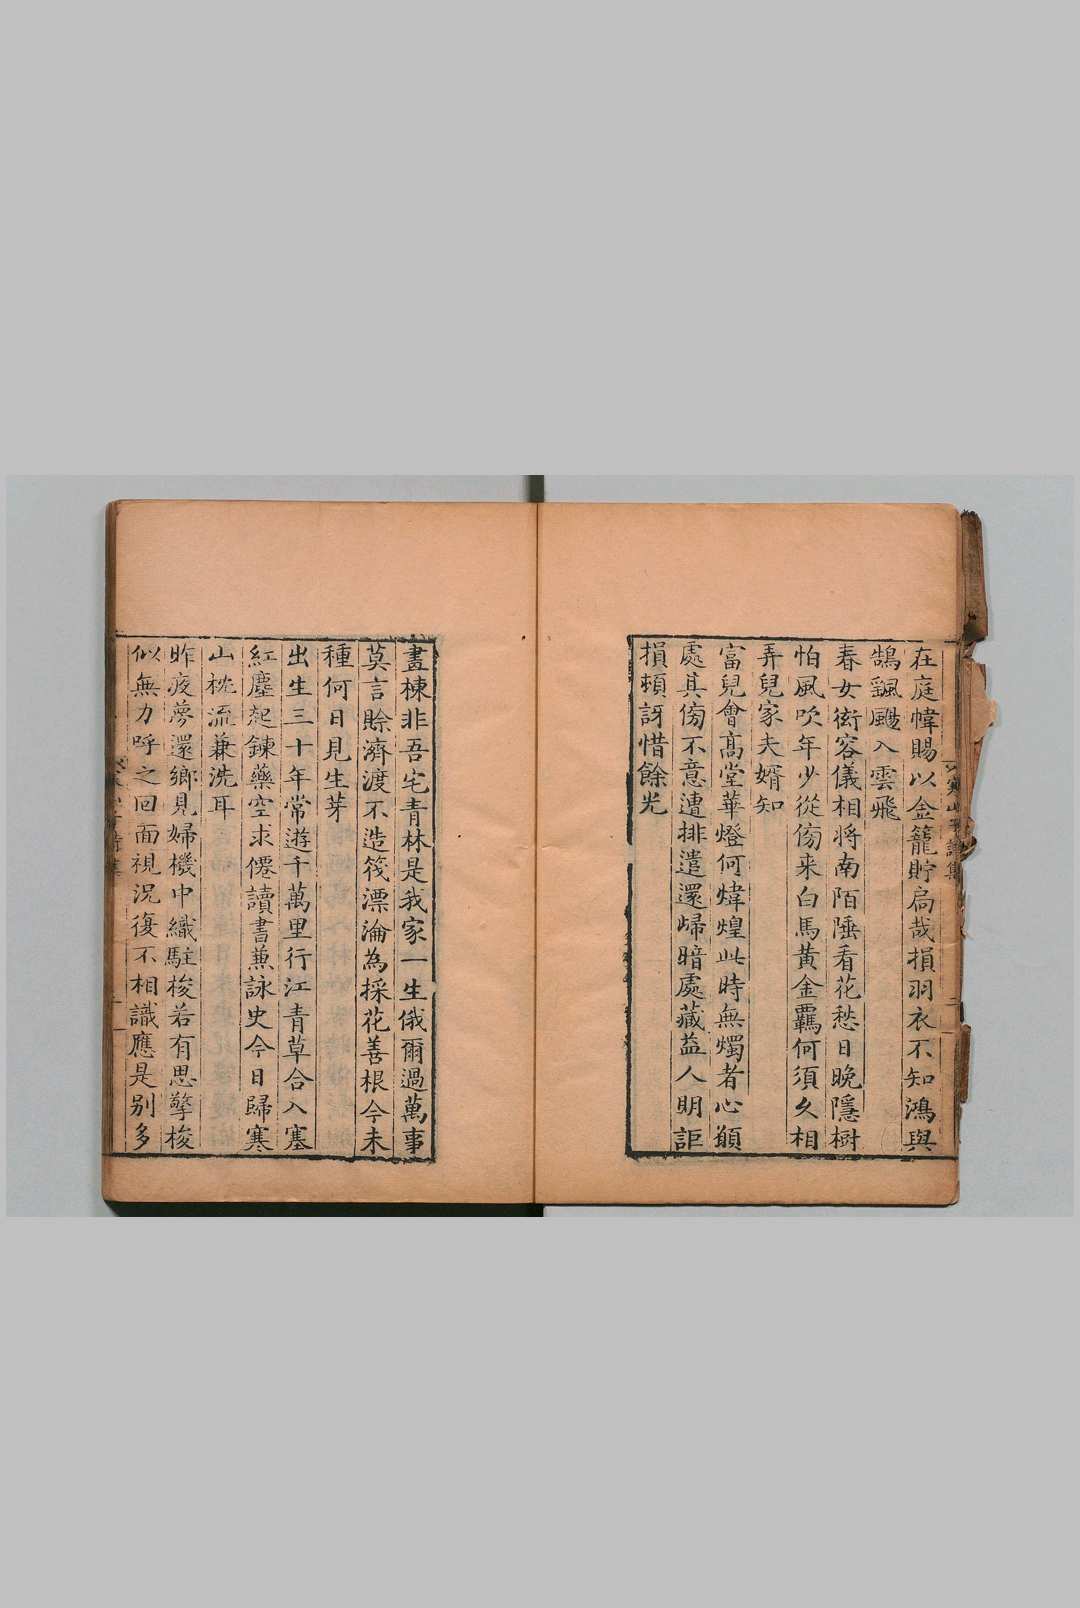 在庭幃賜以金籠貯扃哉損羽衣不知鴻與
鵠飖颺入雲飛
春女衒容儀相將南陌陲看花愁日晚隱樹
怕風吹年少從傍来白馬黃金羈何須久相
弄兒家夫婿知
富兒會高堂華燈何煒煌此時無燭者心願
處其傍不意遭排遣還歸暗處藏益人明詎
損頓訝惜餘光
畫棟非吾宅青林是我家一生俄爾過萬事
莫言賒濟渡不造筏漂淪為採花善根今未
種何日見生芽
出生三十年常遊千萬里行江青草合入塞
紅塵起鍊藥空求僊讀書兼詠史今日歸寒
山枕流兼洗耳
昨夜夢還鄉見婦機中織駐梭若有思擎梭
似無力呼之回面視況復不相識應是别多